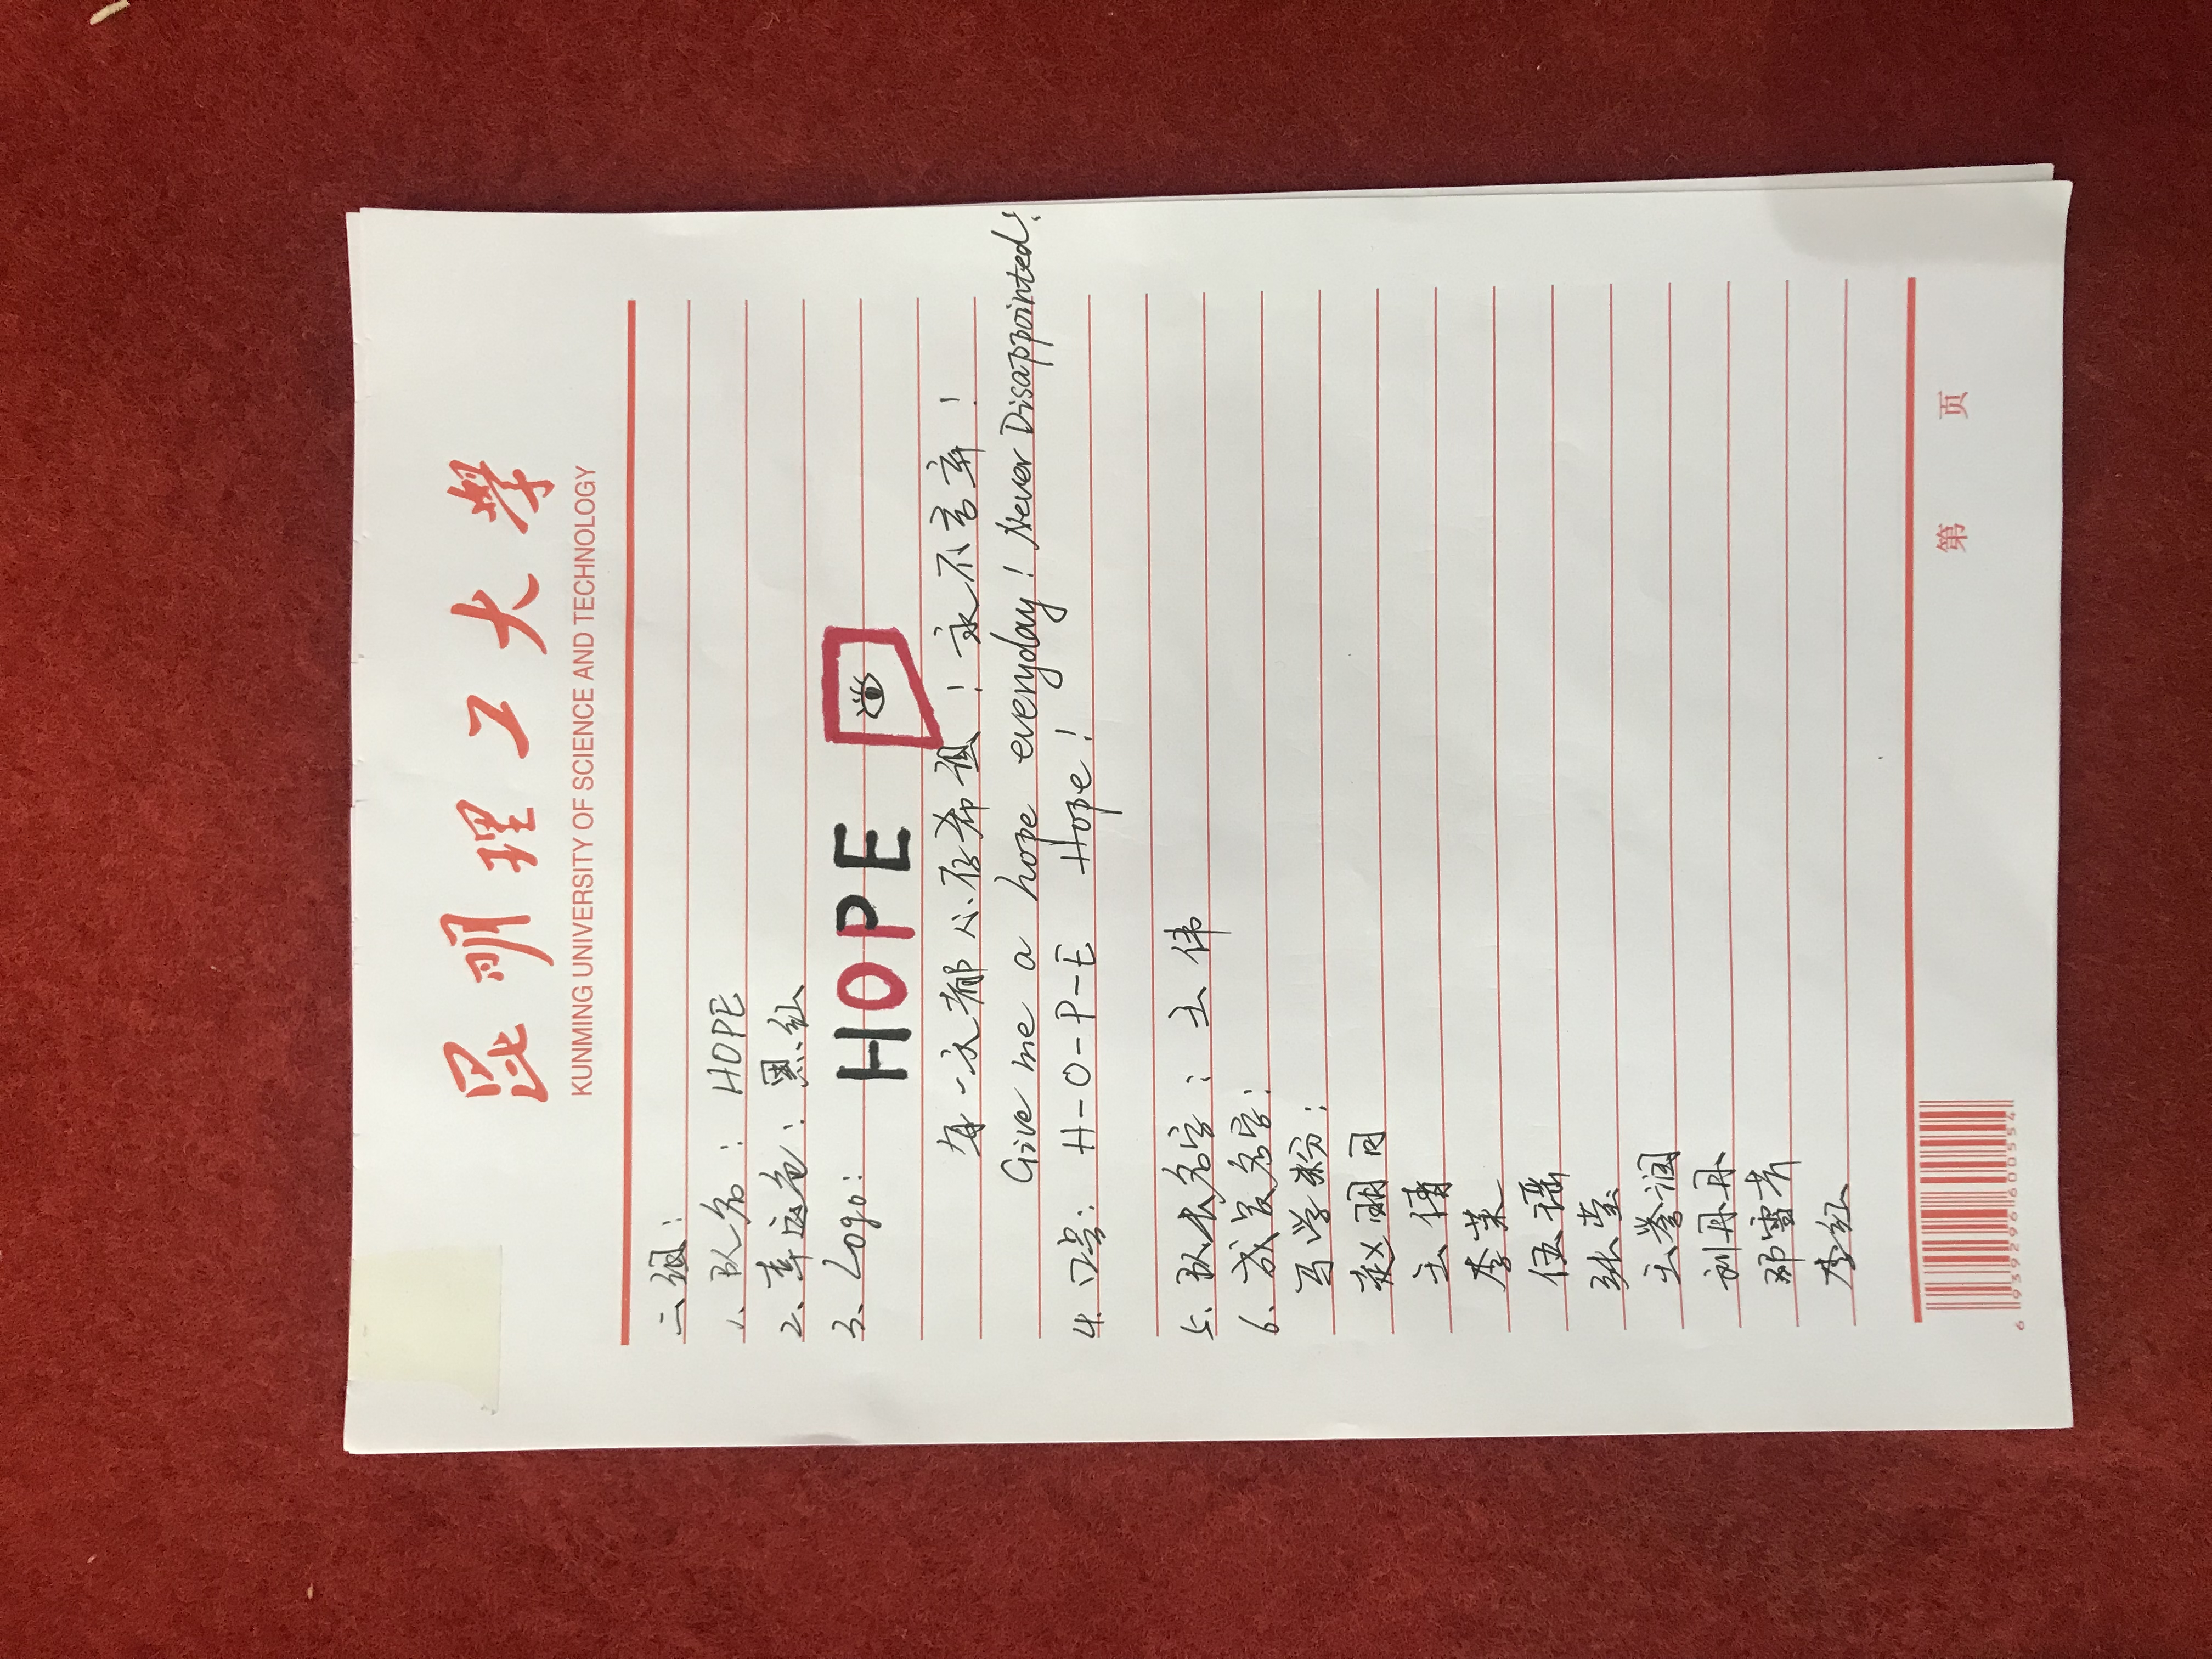 昆明理工大学
KUNMING UNIVERSITY OF SCIENCE AND TECHNOLOGY
二组：
1、队名：HOPE
2、幸运色：黑、红
3、Logo：HOPE
每一天都心存希望！永不言弃！
Give me a hope everyday! Never Disappointed!
4、口号：H-O-P-E Hope!
5、队长名字：王伟
6、成员名字：
马学粉：
赵明月
王倩
李莱
伍瑶
张莹
王誉润
刘丹丹
邓雪芳
李红
第 页
6 939296 600554